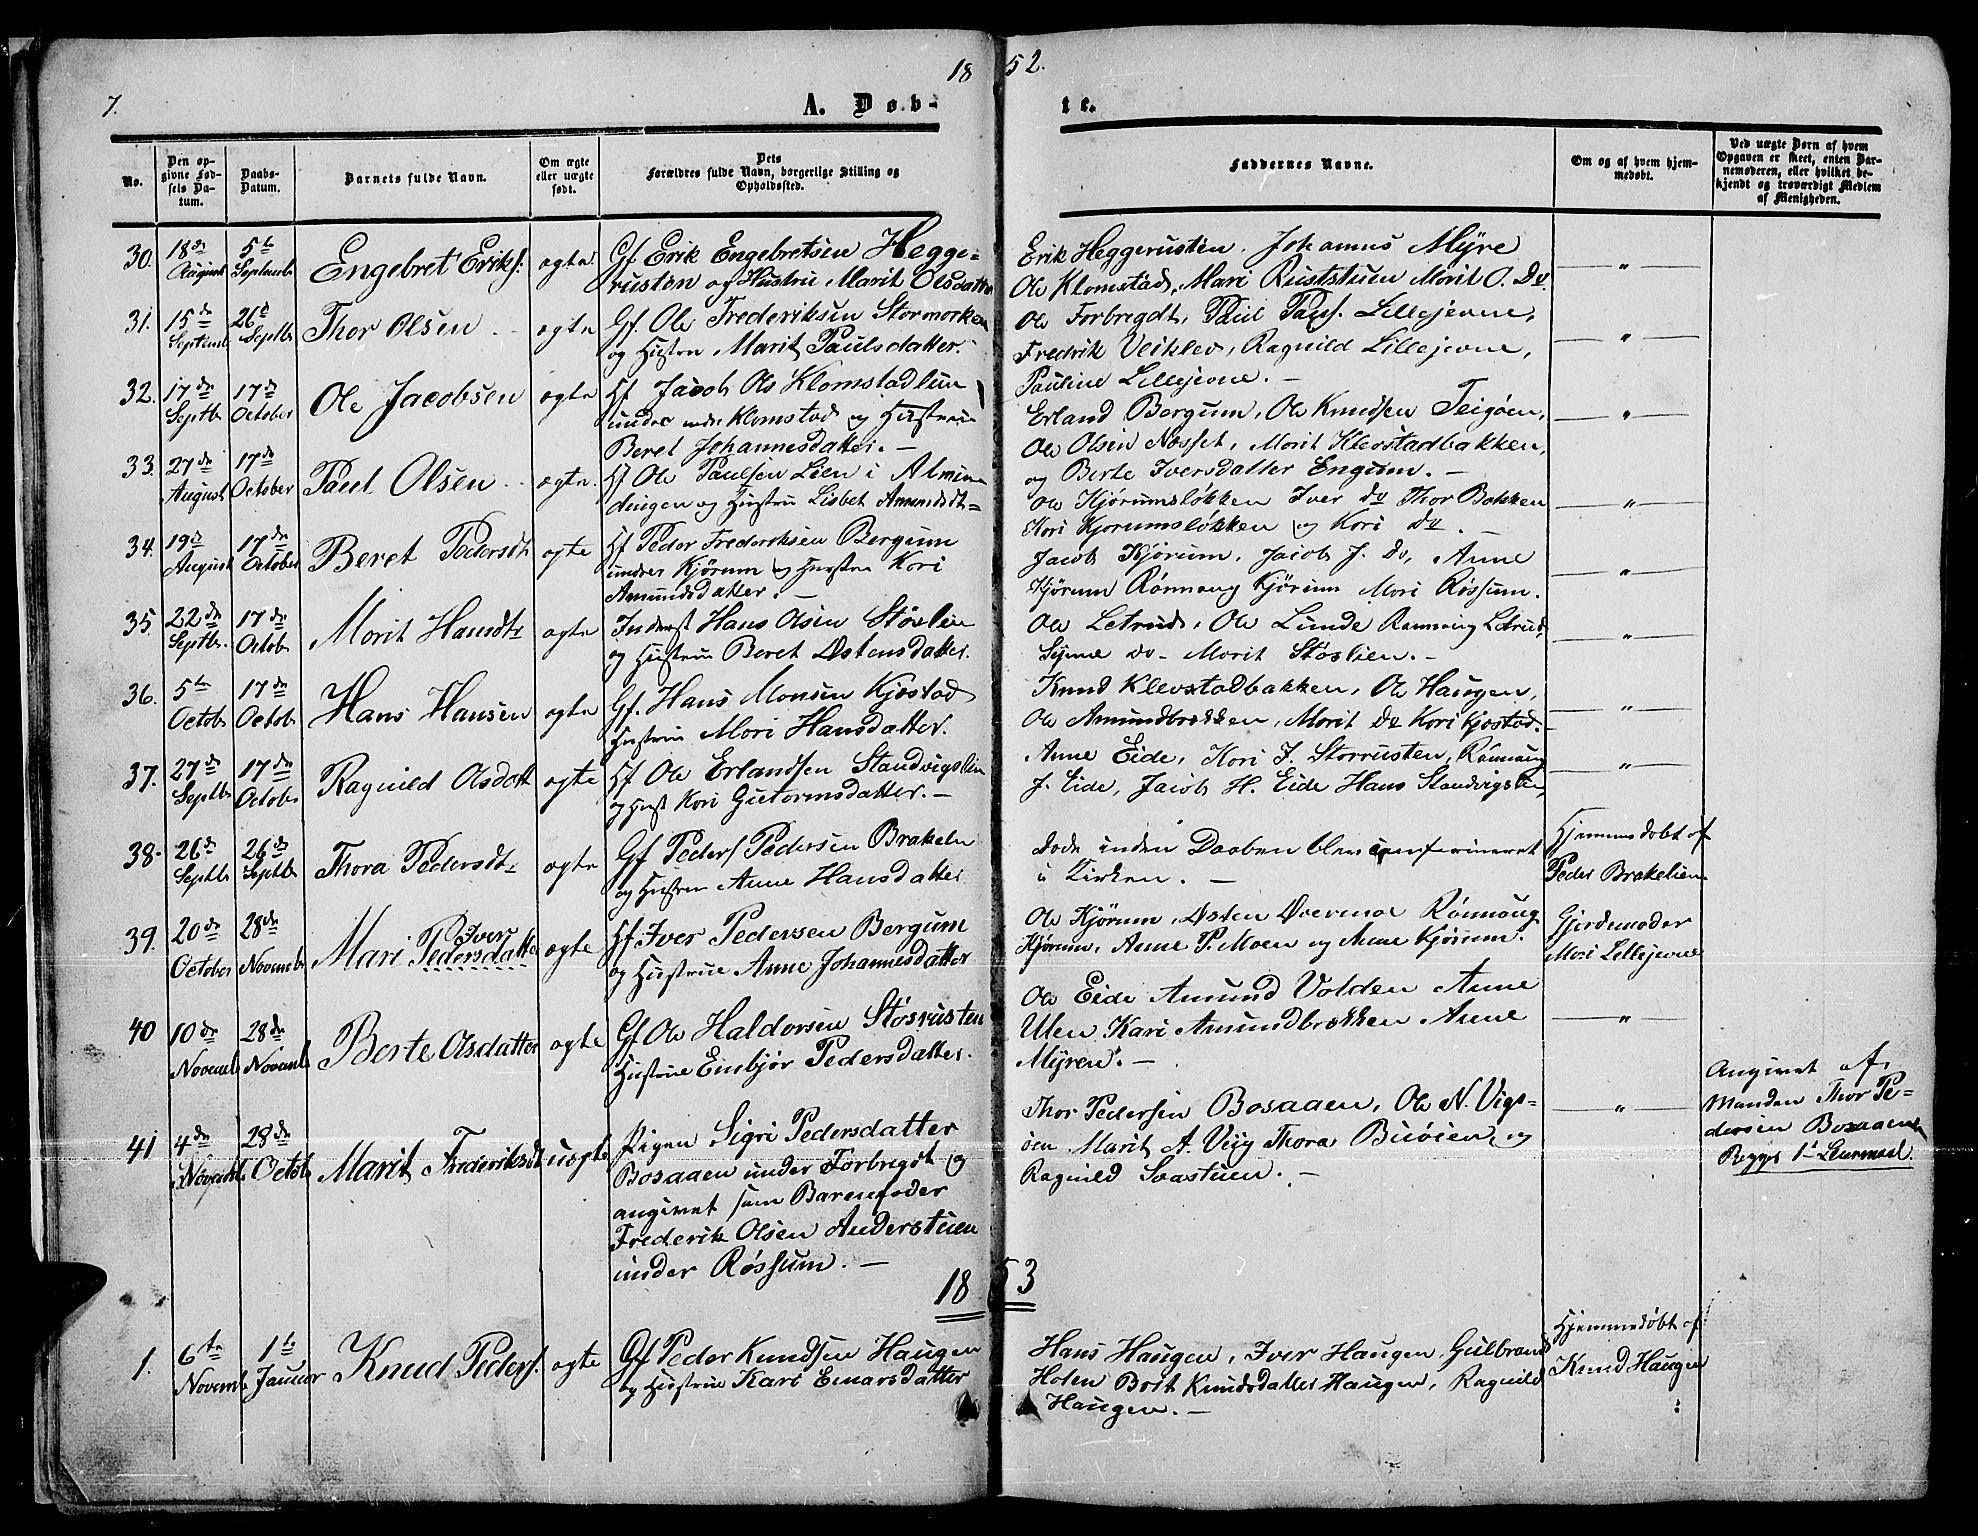 7.
1852.
A. Døbte.
No.
Den opgivne Fødsels Datum.
Daabs-Datum.
Barnets fulde Navn.
Om ægte eller uægte født.
Dets Forældres fulde Navn, borgerlige Stilling og Opholdssted.
Faddernes Navne.
Om og af hvem hjemmedøbt.
Ved uægte Børn af hvem Opgaven er skeet, enten Barnemoderen, eller hvilket bekjendt og troværdigt Medlem af Menigheden.
30. 18de August 5te Septembr Engebret Eriks. ægte
Gf Erik Engebretsen Hegge-
rusten og Hustru Marit Olsdatter
Erik Heggerusten. Johannes Myre
Ole Klomstad, Mari Ruststuen Morit O. Do.
— " —
31. 15de Septemb 26de Septbr Thor Olsen ægte
Gf. Ole Frederiksen Stormorken
og Hustru Marit Paulsdatter.
Ole Forbregdt, Paul Pauls. Lillejevne,
Fredrik Veiklev, Ragnild Lillejevne,
Pauline Lillejevne. —
— " —
32. 17de Septbr 17de October Ole Jacobsen ægte
Hf Jacob Ols Klomstadlien
under Klomstad og Hustrue
Beret Johannesdatter. —
Erland Bergum, Ole Knudsen Teigøen,
Ole Olsen Næsset, Morit Klevstadbakken,
og Berte Iversdatter Engum. —
— " —
33. 27de August 17de October Paul Olsen ægte
Hf Ole Paulsen Lien i Almin-
dingen og Hustru Lisbet Amundsdt
Ole Kjørumsløkken Iver Do Thor Bakken
Kari Kjorumsløkken og Kori Do.
— " —
34. 19de August 17de October Beret Pedersdt ægte
Hf Peder Frederiksen Bergum
under Kjørum og Hustru Kori
Amundsdatter. —
Jacob Kjørum, Jacob J. Do, Anne
Kjørum Rønnaug Kjørum Mori Røssum.
— " —
35. 22de Septbr. 17de Octobr Morit Hansdtr ægte
Inderst Hans Olsen Støvlien
og Hustrue Beret Østensdatter.
Ole Letrud, Ole Lunde Rønnaug Letrud,
Synne Do Morit Støslien. —
— " —
36. 5te Octobr 17de Octobr Hans Hansen ægte
Gf. Hans Monsen Kjøstad
Hustrue Mori Hansdatter.
Knud Klevstadbakken, Ole Haugen,
Ole Amundbækken, Morit Do Kori Kjøstad.
— " —
37. 27de Septbr 17de October Ragnild Olsdatt ægte
Hf Ole Erlandsen Standvigslien
og Hust Kori Gutormsdatter. —
Anne Eide, Kori J. Storrusten, Rønnaug
J. Eide, Jacob H. Eide Hans Standvigslien,
— " —
38. 26de Septbr 26de Septbr Thora Pedersdtr ægte
Gf Peder Pedersen Brakelien
og Hustru Anne Hansdatter
Døde inden Daaben blev confirmeret
i Kirken. —
Hjemmedøbt af
Peder Brakelien
39. 20de October 28de Novembr Mari Pedersdatter Iver ægte
Hf Iver Pedersen Bergum
og Hustrue Anne Johannesdatter
Ole Kjørum, Østen Øvermoe Rønnaug
Kjørum, Anne P. Moen og Anne Kjørum.
Gjordemoder
Mori Lillejevne
40 10de Novemb 28de Novemb Berte Olsdatter ægte
Gf Ole Haldorsen Støsrusten
Hustrue Embjør Pedersdatter.
Ole Eide Amund Volden Anne
Ulen, Kari Amundbækken Anne
Myren. —
— " —
41 4de Novembr 28de Octobr Marit Frederiksdt uægte
Pigen Sigri Pedersdatter
Bosaaen under Forbregdt og
angivet som Barnefader
Frederik Olsen Anderstuen
under Røssum. —
Thor Pedersen Bosaaen, Ole N. Vigs-
øen Marit A. Viig Thora Buøien, og
Ragnild Svastuen. —
— " —
Angivet af
Manden Thor Pe-
dersen Bosaaen
Begges 1te Leiermaal
1853
1. 6te Novemb 1te Januar Knud Peders. ægte
Gf Peder Knudsen Haugen
og Hustrue Kari Emarsdatter
Hans Haugen, Iver Haugen, Gulbrand
Holen Borit Knudsdatter Haugen, Ragnild
Haugen. —
Hjemmedøbt af
Knud Haugen